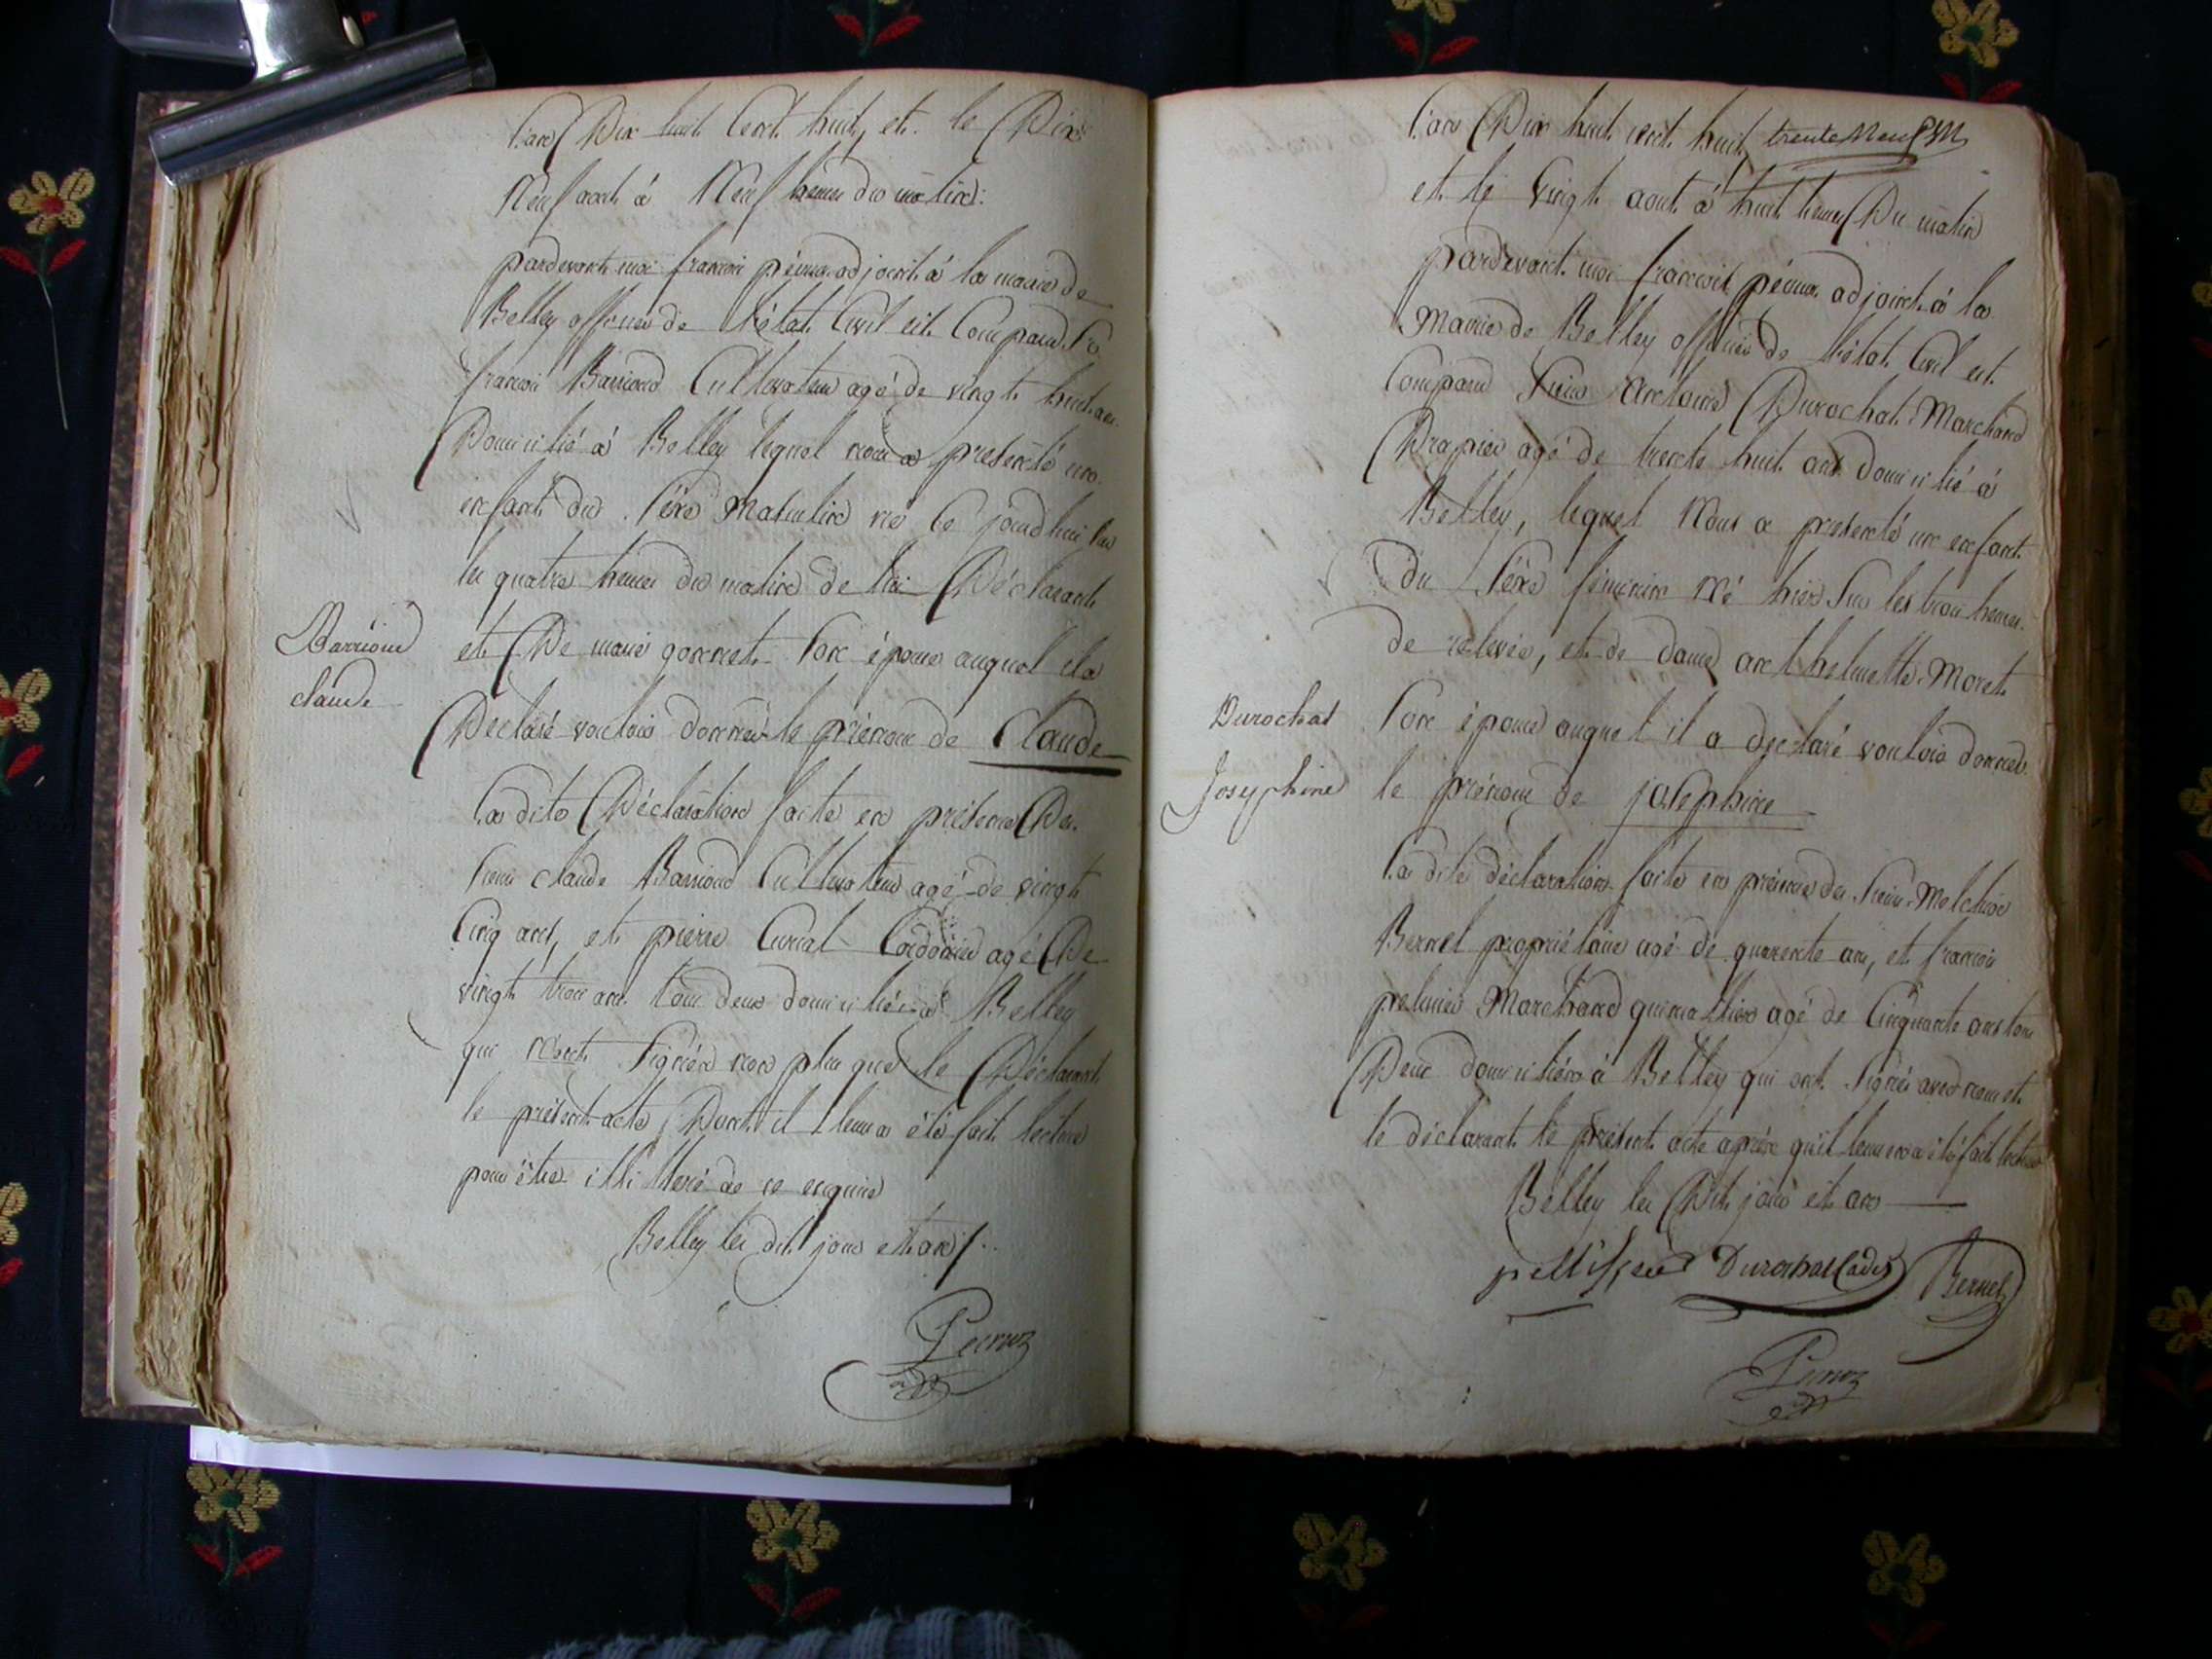 L'an Dix huit Cent huit, et le Dix
Neuf aout à Neuf heures du matin:
pardevant moi francois pérnoz adjoint à la mairie de
Belley officier de l'état Civil est Comparu Sr
francois Barriond Cultivateur agé de vingt huit ans
Domicilié à Belley lequel nous a presenté un
enfant du séxe Masculin né Ce jourd'hui sur
les quatre heures du matin de lui Déclarant
et De marie gonnet Son épouse auquel il a
Declaré vouloir donner le prénom de Claude
Barriond
claude
La dite Déclaration faite en présence Des
sieurs claude Barriond Cultivateur agé de vingt
Cinq ans, et pierre Curial Cordonnier agé De
vingt trois ans tous deux domiciliés à Belley
qui n'ont Signés non plus que le Déclarant
le présent acte Dont il leur a été fait lecture
pour être illitteré de ce enquis
Belley les dit jour et an /.
Pernoz
L'an Dix huit cent huit trente Neuf
et le vingt aout à huit heures Du matin
pardevant moi francois pérnoz adjoint à la
Mairie de Belley officier de l'état Civil est
Comparu Sieur Antoine Durochat Marchand
Drapier agé de trente huit ans domicilié à
Belley, lequel Nous a presenté un enfant
du Séxe féminin Né hier Sur les trois heures
de relevée, et de dame anthelmette Moret
Son épouse auquel il a declaré vouloir donner
le prénom de josephine
Durochat
Josephine
La dite déclaration faite en présence des Sieurs Melchior
Bernel propriétaire agé de quarente ans, et francois
Marchand quincaillier agé de Cinquante ans tous
Deux domiciliés à Belley qui ont Signés avec nous et
le déclarant le présent acte après qu'il leur en a été fait lecture
Belley les Dit jour et an
pellissier Durochat Cadet Bernel
Pernoz